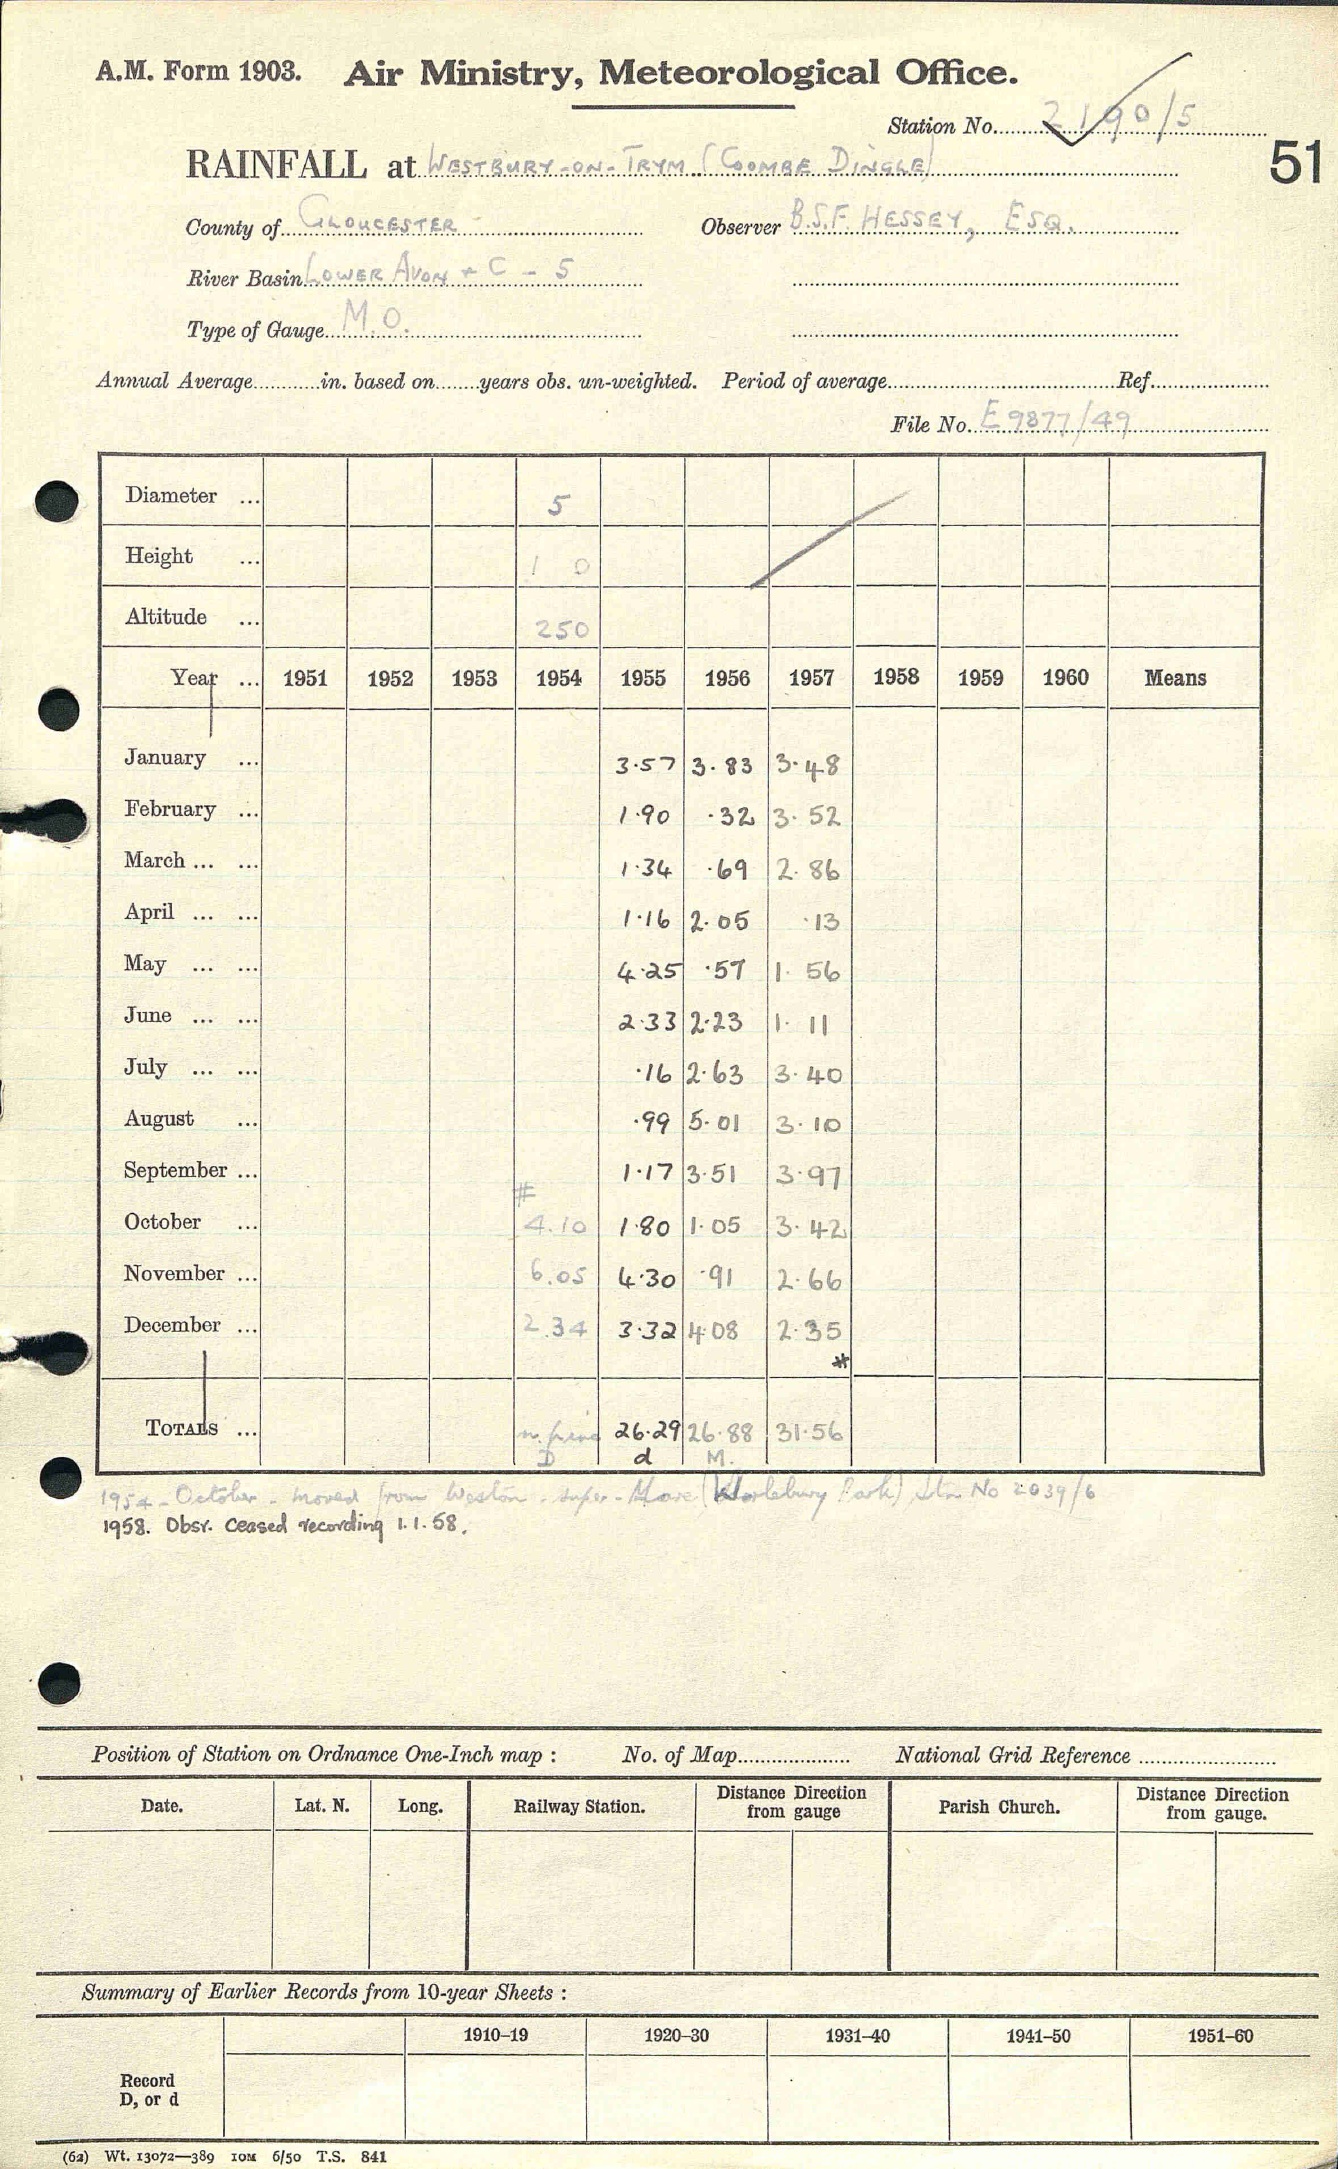 A.M. Form 1903. Air Ministry, Meteorological Office.
Station No. 2190/5
RAINFALL at WESTBURY-ON-TRYM (COOMBE DINGLE)
51
County of GLOUCESTER Observer B.S.F. HESSEY, ESQ.
River Basin LOWER AVON + C - 5
Type of Gauge M.O.
Annual Average in. based on years obs. un-weighted. Period of average Ref.
File No. E9877/49
Diameter ... 5
Height ... 1 0
Altitude ... 250
Year ... 1951 1952 1953 1954 1955 1956 1957 1958 1959 1960 Means
January ... 3.57 3.83 3.48
February ... 1.90 .32 3.52
March ... ... 1.34 .69 2.86
April ... ... 1.16 2.05 .13
May ... ... 4.25 .57 1.56
June ... ... 2.33 2.23 1.11
July ... ... .16 2.63 3.40
August ... .99 5.01 3.10
September ... 1.17 3.51 3.97
#
October ... 4.10 1.80 1.05 3.42
November ... 6.05 4.30 .91 2.66
December ... 2.34 3.32 4.08 2.35
*
TOTALS ... 26.29 26.88 31.56
D d M.
1954 - October - moved from Weston-super-Mare (Worlebury Park) Stn No 2039/6
1958. Obsr. ceased recording 1.1.58.
Position of Station on Ordnance One-Inch map : No. of Map National Grid Reference
Date. Lat. N. Long. Railway Station. Distance Direction from gauge Parish Church. Distance Direction from gauge.
Summary of Earlier Records from 10-year Sheets :
1910–19 1920–30 1931–40 1941–50 1951–60
Record
D, or d
(62) Wt. 13072—389 10M 6/50 T.S. 841